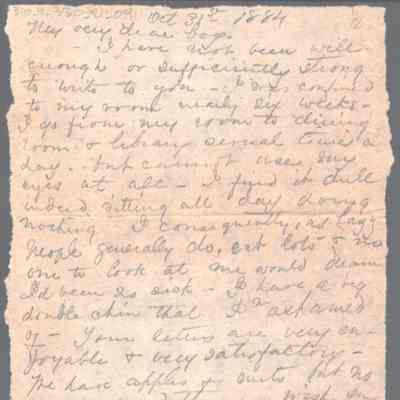 Oct 31st 1884
My very dear boy.
- I have not been well
enough or sufficiently strong
to write to you - I was confined
to my room nearly six weeks -
I go from my room to dining
room & library several times a
day. but cannot use my
eyes at all - I find it dull
indeed sitting all day doing
nothing I consequently, as lazy
people generally do, eat lots & no
one to look at me would dream
I'd been so sick - I have a big
double chin that I'm ashamed
of - Your letters are very en-
joyable & very satisfactory -
We have apples of sorts but no